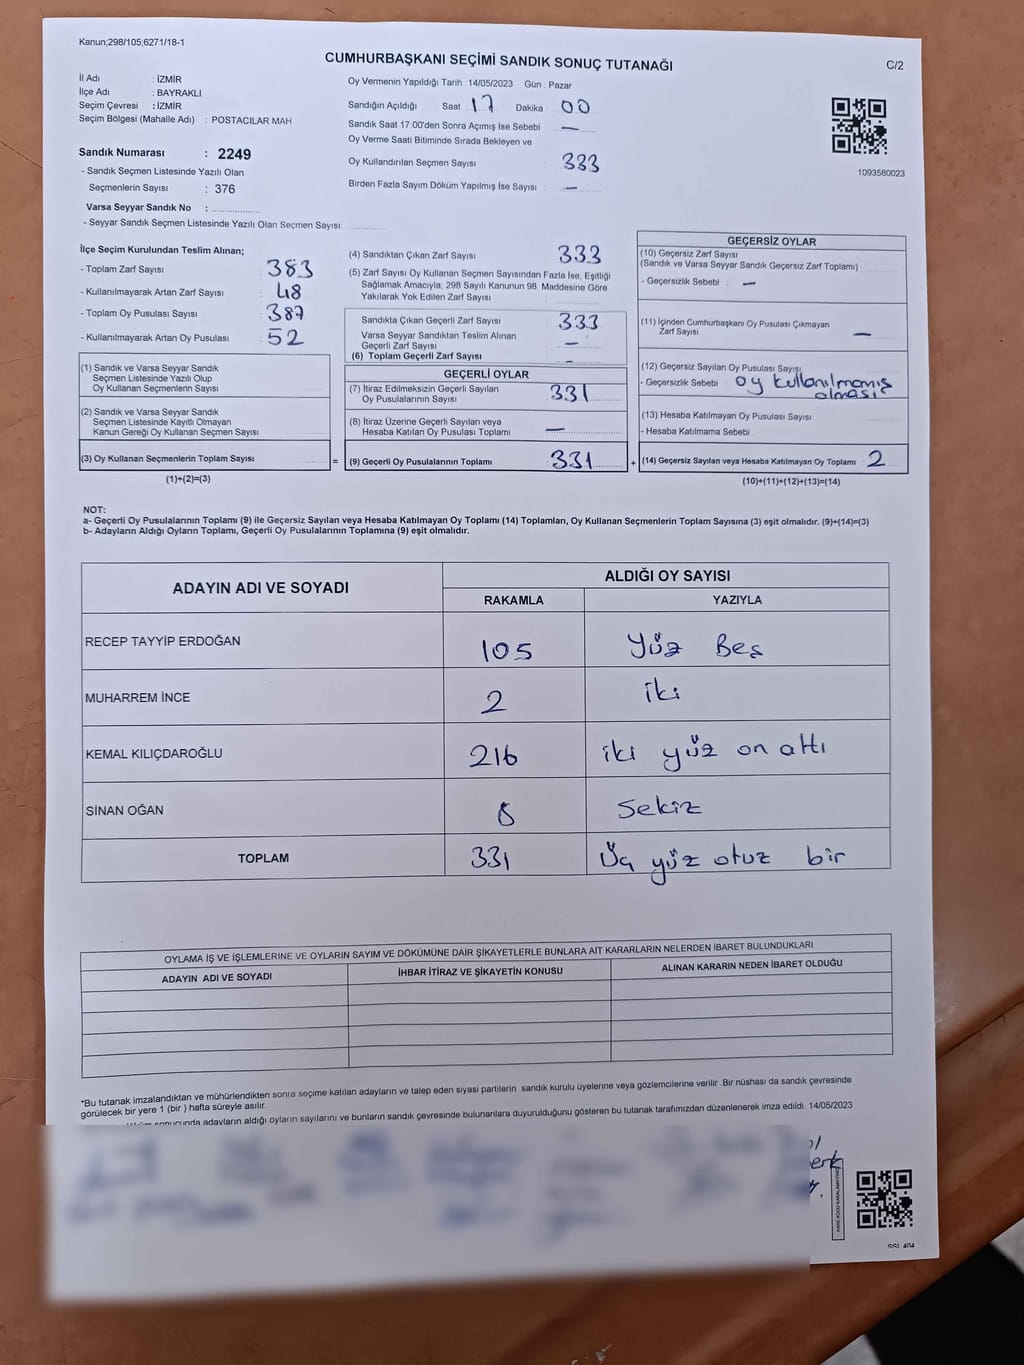 Kanun;298/105;6271/18-1
CUMHURBAŞKANI SEÇİMİ SANDIK SONUÇ TUTANAĞI
C/2
İl Adı : İZMİR
İlçe Adı : BAYRAKLI
Seçim Çevresi : İZMİR
Seçim Bölgesi (Mahalle Adı) : POSTACILAR MAH
Sandık Numarası : 2249
- Sandık Seçmen Listesinde Yazılı Olan
Seçmenlerin Sayısı : 376
Varsa Seyyar Sandık No :
- Seyyar Sandık Seçmen Listesinde Yazılı Olan Seçmen Sayısı:
Oy Vermenin Yapıldığı Tarih : 14/05/2023 Gün : Pazar
Sandığın Açıldığı Saat 17 Dakika : 00
Sandık Saat 17:00'den Sonra Açımış İse Sebebi : —
Oy Verme Saati Bitiminde Sırada Bekleyen ve
Oy Kullandırılan Seçmen Sayısı : 333
Birden Fazla Sayım Döküm Yapılmış İse Sayısı : —
1093580023
İlçe Seçim Kurulundan Teslim Alınan;
- Toplam Zarf Sayısı : 383
- Kullanılmayarak Artan Zarf Sayısı : 48
- Toplam Oy Pusulası Sayısı : 387
- Kullanılmayarak Artan Oy Pusulası : 52
(1) Sandık ve Varsa Seyyar Sandık
Seçmen Listesinde Yazılı Olup
Oy Kullanan Seçmenlerin Sayısı
(2) Sandık ve Varsa Seyyar Sandık
Seçmen Listesinde Kayıtlı Olmayan
Kanun Gereği Oy Kullanan Seçmen Sayısı
(3) Oy Kullanan Seçmenlerin Toplam Sayısı =
(1)+(2)=(3)
(4) Sandıktan Çıkan Zarf Sayısı : 333
(5) Zarf Sayısı Oy Kullanan Seçmen Sayısından Fazla İse, Eşitliği
Sağlamak Amacıyla, 298 Sayılı Kanunun 98. Maddesine Göre
Yakılarak Yok Edilen Zarf Sayısı :
Sandıkta Çıkan Geçerli Zarf Sayısı : 333
Varsa Seyyar Sandıktan Teslim Alınan
Geçerli Zarf Sayısı : —
(6) Toplam Geçerli Zarf Sayısı –
GEÇERLİ OYLAR
(7) İtiraz Edilmeksizin Geçerli Sayılan
Oy Pusulalarının Sayısı : 331
(8) İtiraz Üzerine Geçerli Sayılan veya
Hesaba Katılan Oy Pusulası Toplamı —
(9) Geçerli Oy Pusulalarının Toplamı : 331 +
GEÇERSİZ OYLAR
(10) Geçersiz Zarf Sayısı
(Sandık ve Varsa Seyyar Sandık Geçersiz Zarf Toplamı)
- Geçersizlik Sebebi : —
(11) İçinden Cumhurbaşkanı Oy Pusulası Çıkmayan
Zarf Sayısı —
(12) Geçersiz Sayılan Oy Pusulası Sayısı
- Geçersizlik Sebebi : oy kullanılmamış
olması
(13) Hesaba Katılmayan Oy Pusulası Sayısı
- Hesaba Katılmama Sebebi :
(14) Geçersiz Sayılan veya Hesaba Katılmayan Oy Toplamı : 2
(10)+(11)+(12)+(13)=(14)
NOT:
a- Geçerli Oy Pusulalarının Toplamı (9) ile Geçersiz Sayılan veya Hesaba Katılmayan Oy Toplamı (14) Toplamları, Oy Kullanan Seçmenlerin Toplam Sayısına (3) eşit olmalıdır. (9)+(14)=(3)
b- Adayların Aldığı Oyların Toplamı, Geçerli Oy Pusulalarının Toplamına (9) eşit olmalıdır.
ADAYIN ADI VE SOYADI
ALDIĞI OY SAYISI
RAKAMLA YAZIYLA
RECEP TAYYİP ERDOĞAN 105 Yüz Beş
MUHARREM İNCE 2 iki
KEMAL KILIÇDAROĞLU 216 iki yüz on altı
SİNAN OĞAN 8 Sekiz
TOPLAM 331 Üç yüz otuz bir
OYLAMA İŞ VE İŞLEMLERİNE VE OYLARIN SAYIM VE DÖKÜMÜNE DAİR ŞİKAYETLERLE BUNLARA AİT KARARLARIN NELERDEN İBARET BULUNDUKLARI
ADAYIN ADI VE SOYADI İHBAR İTİRAZ VE ŞİKAYETİN KONUSU ALINAN KARARIN NEDEN İBARET OLDUĞU
*Bu tutanak imzalandıktan ve mühürlendikten sonra seçime katılan adayların ve talep eden siyasi partilerin sandık kurulu üyelerine veya gözlemcilerine verilir .Bir nüshası da sandık çevresinde
görülecek bir yere 1 (bir ) hafta süreyle asılır.
sonucunda adayların aldığı oyların sayılarını ve bunların sandık çevresinde bulunanlara duyurulduğunu gösteren bu tutanak tarafımızdan düzenlenerek imza edildi. 14/05/2023